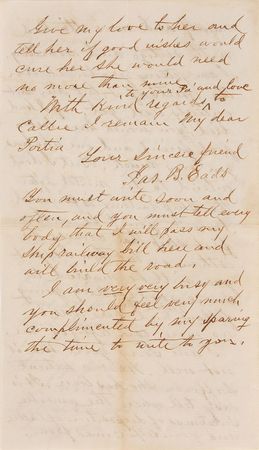 Give my love to her and
tell her if good wishes would
cure her she would need
no more than mine
With kind regards ^ to your Pa, and love to
Callie I remain My dear
Portia
Your Sincere friend
Jas. B. Eads
You must write soon and
often, and you must tell every
body that I will pass my
ship railway bill here and
will build the road.
I am very very busy and
you should feel very much
complimented by my sparing
the time to write to you.